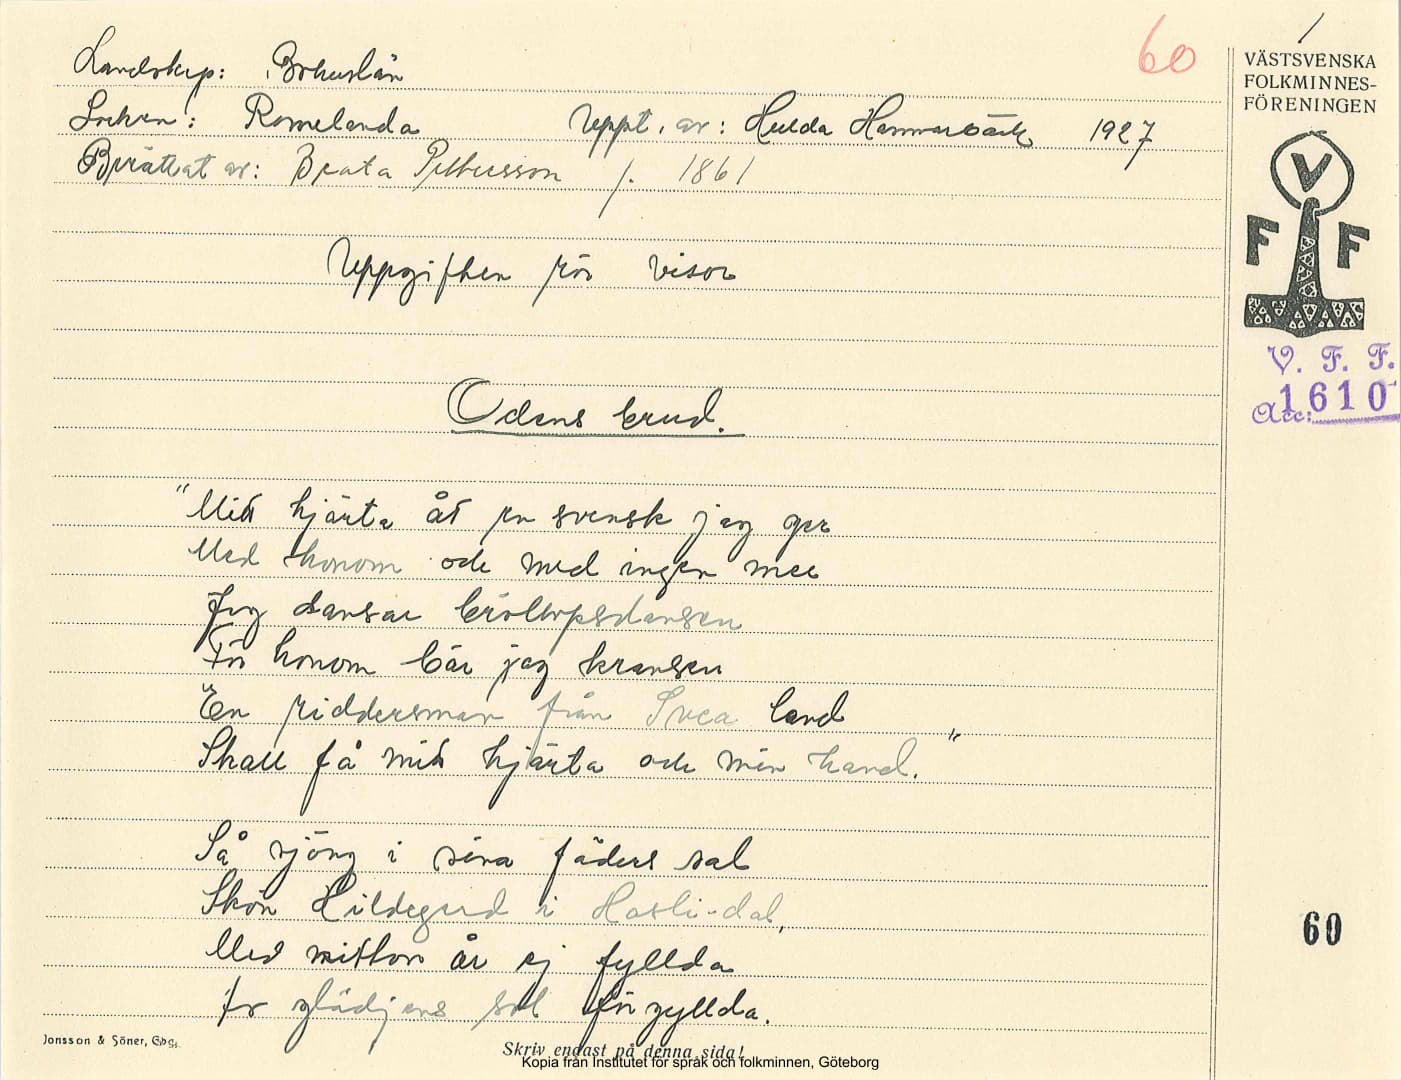 60
1
VÄSTSVENSKA
FOLKMINNES-
FÖRENINGEN
Landskap: Bohuslän
Socken: Romelanda Uppt. av: Hulda Hammarbäck 1927
Berättat av: Beata Pettersson f. 1861
V
F F
Uppgiften rör visor
V. F. F.
Acc: 1610
Odens brud.
"Mitt hjärta åt en svensk jag ger
Med honom och med ingen mer
Jag dansar bröllopsdansen
För honom bär jag kransen
En riddersman från Svea land
Skall få mitt hjärta och min hand."
Så sjöng i sina fäders sal
Skön Hildegard i Hasli-dal,
Med nitton år ej fyllda
av glädjens sol förgyllda.
60
Jonsson & Söner, Gbg.
Skriv endast på denna sida!
Kopia från Institutet för språk och folkminnen, Göteborg